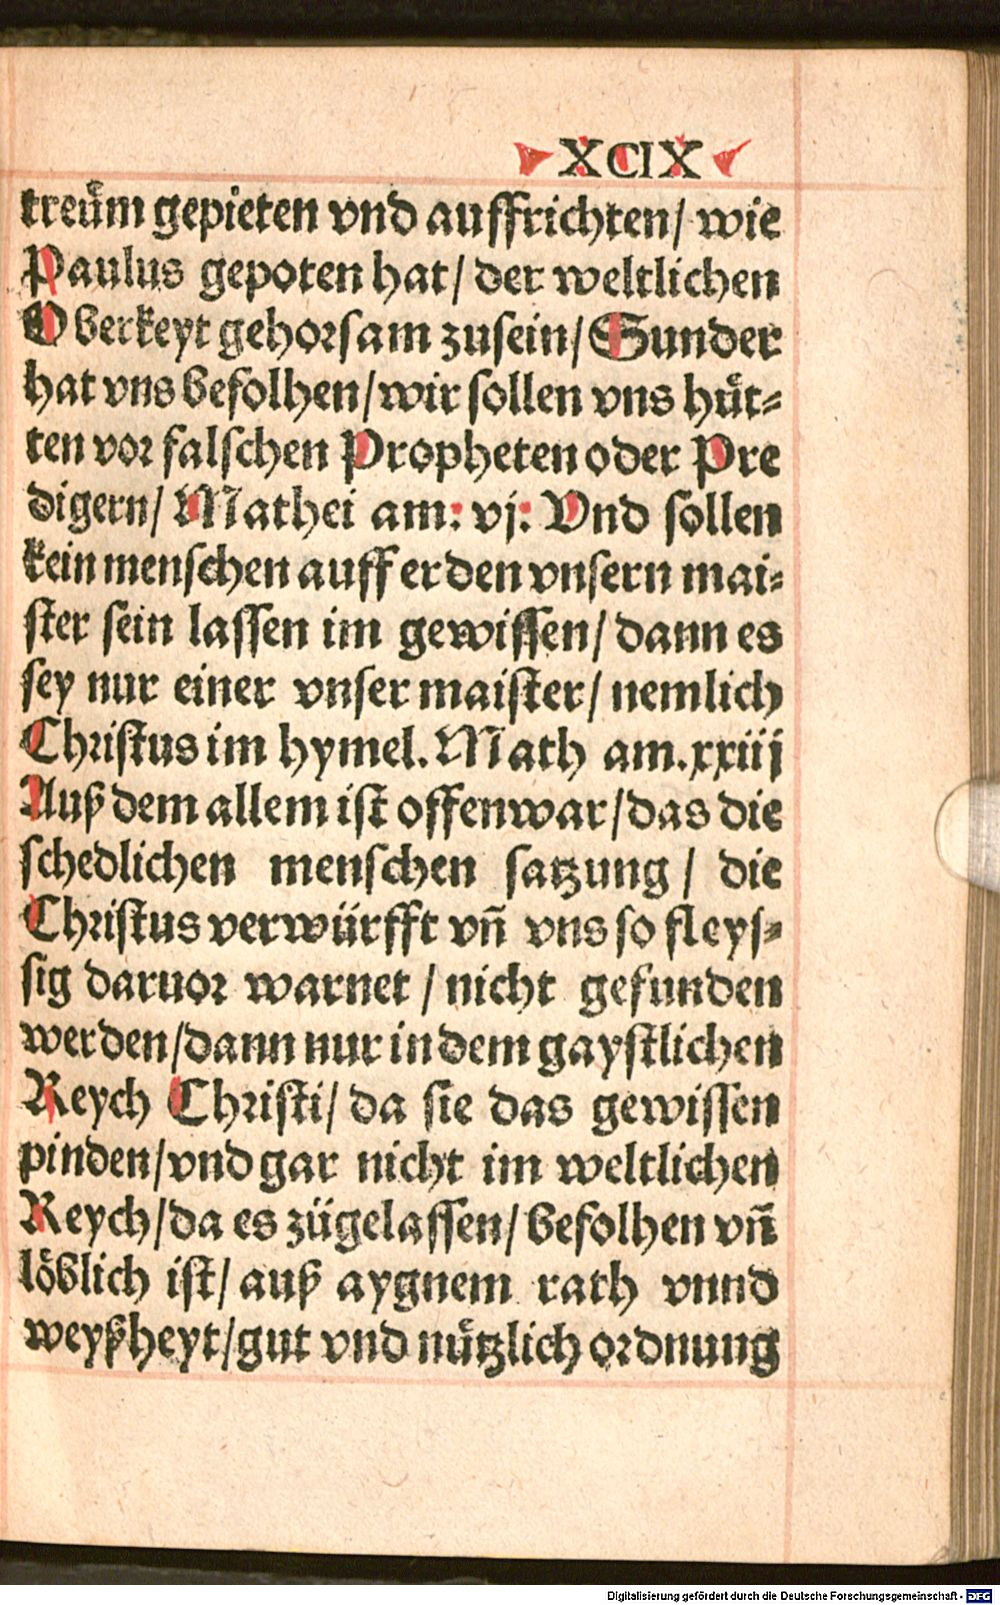 XCIX
treuͤm gepieten vnd auffrichten/ wie
Paulus gepoten hat/ der weltlichen
Oberkeyt gehorsam zusein/ Sunder
hat vns befolhen/ wir sollen vns huͤt⸗
ten vor falschen Propheten oder Pre
digern/ Mathei am: vj: Vnd sollen
kein menschen auff erden vnsern mai⸗
ster sein lassen im gewissen/ dann es
sey nur einer vnser maister/ nemlich
Christus im hymel. Math am. xxiij
Auß dem allem ist offenwar/ das die
schedlichen menschen satzung/ die
Christus verwürfft vñ vns so fleys⸗
sig daruor warnet/ nicht gefunden
werden/ dann nur in dem gaystlichen
Reych Christi/ da sie das gewissen
pinden/ vnd gar nicht im weltlichen
Reych/ da es zügelassen/ befolhen vñ
löblich ist/ auß aygnem rath vnnd
weyßheyt/ gut vnd nuͤtzlich ordnung
Digitalisierung gefördert durch die Deutsche Forschungsgemeinschaft - DFG